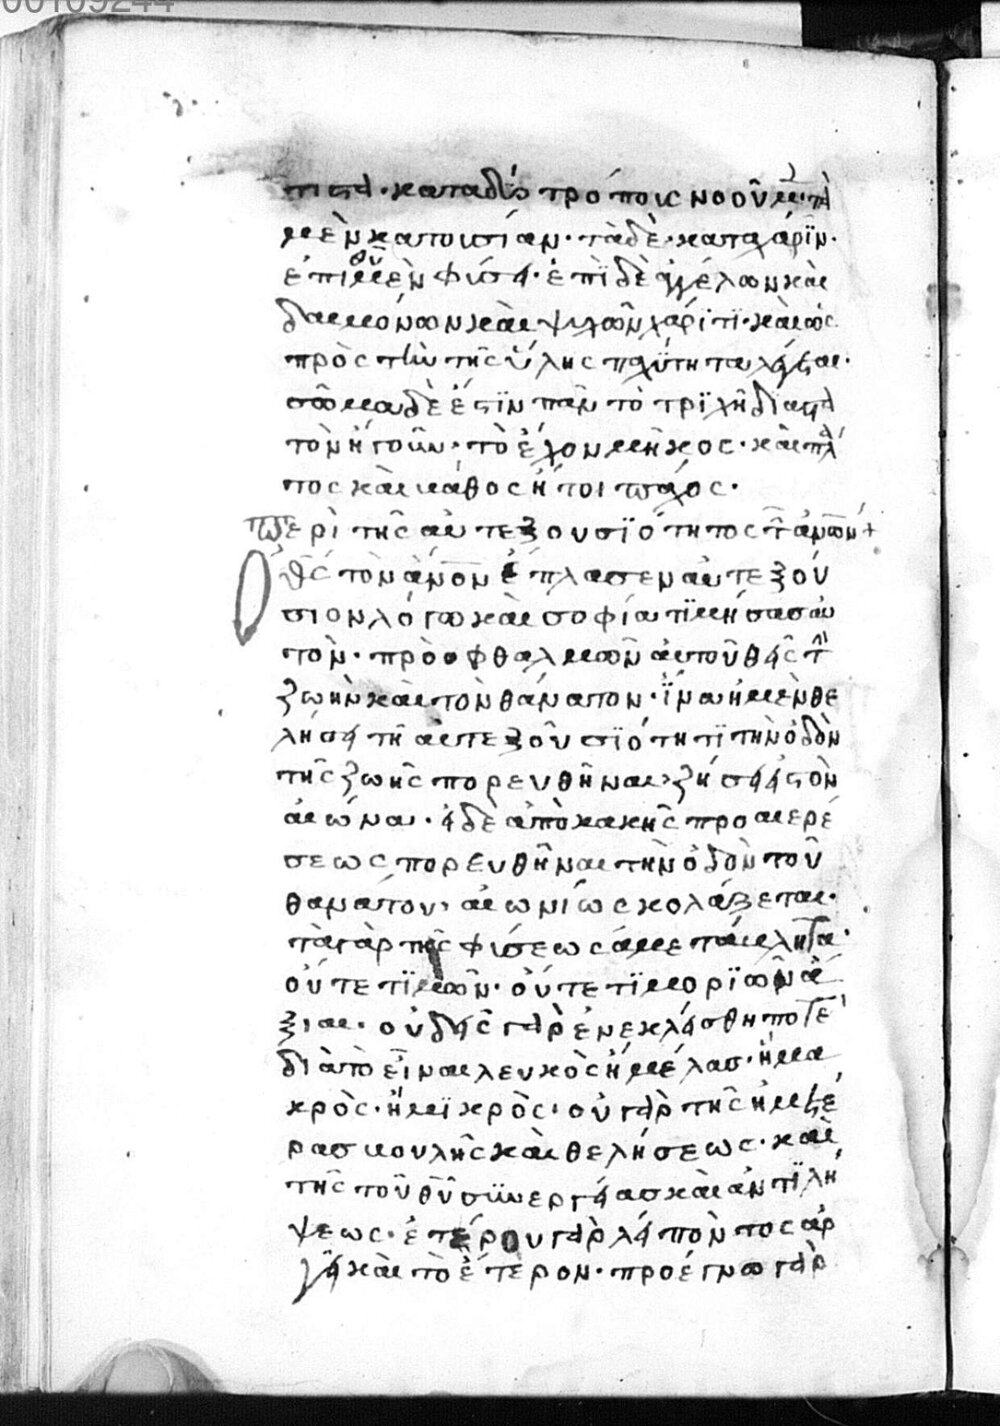 00109244
τιστὰ· κατα δύο τρόποις νοοῦμεν· τὰ
μὲν κατ ουσίαν· τὰ δὲ· κατα χάριν·
ἐπὶ θῦ μὲν φύσει· ἐπὶ δὲ ἀγγέλων καὶ
δαιμόνων καὶ ψυχῶν χάριτι· καὶ ὡς
πρὸς τὴν τῆς ὕλης παχύτητα λέγεται·
σῶμα δὲ ἐστὶν πᾶν τὸ τριχῆ διαστα
τὸν ἤγουν· τὸ ἔχον μῆκος· καὶ πλά
τος καὶ βάθος ἤτοι πάχος·
Περὶ τῆς αὐτεξουσιότητος τῶν ἀνων+
Ὁ θς τὸν ἀνον ἔπλασεν αὐτεξού
σιον λόγω καὶ σοφία τιμήσας αὐ
τὸν· πρὸ οφθαλμῶν αὐτοῦ θεὶς τὴν
ζωὴν καὶ τὸν θάνατον· ἵνα ἠ μὲν θε
λήσει τῆ αὐτεξουσιότητι τὴν ὁδὸν
τῆς ζωῆς πορευθῆναι· ζήσει εἰς τὸν
αιώνα· εἰ δὲ ἀπὸ κακῆς προαιρέ
σεως πορευθῆναι τὴν ὁδὸν τοῦ
θανάτου· αἰωνίως κολάζεται·
τὰ γὰρ τῆς φύσεως ἀμετάβλητα·
οὔτε τιμῶν· οὔτε τιμοριῶν ἄ
ξια· οὐδεὶς γὰρ ἐνεκλείσθη ποτὲ
διὰ τὸ εἶναι λευκὸς ἢ μέλας· ἢ μα
κρὸς· ἢ μικρὸς· οὐ γὰρ τῆς ἡμετέ
ρας βουλῆς καὶ θελήσεως· καὶ
τῆς τοῦ θῦ συνεργείας καὶ ἀντιλή
ψεως· ἑτέρου γὰρ λείποντος ἀρ
γεῖ καὶ τὸ ἕτερον· προέγνω γὰρ